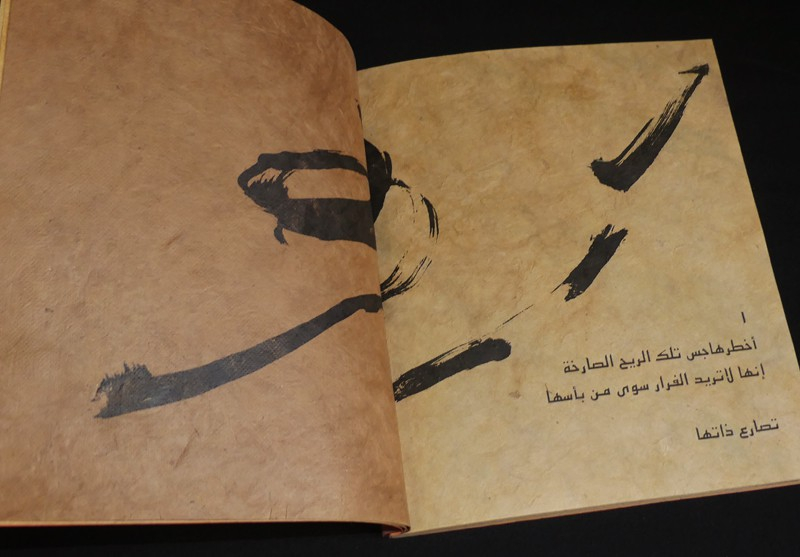 ١
أخطرهاجس تلك الريح الصارخة
إنها لاتريد الفرار سوى من بأسها
تصارع ذاتها